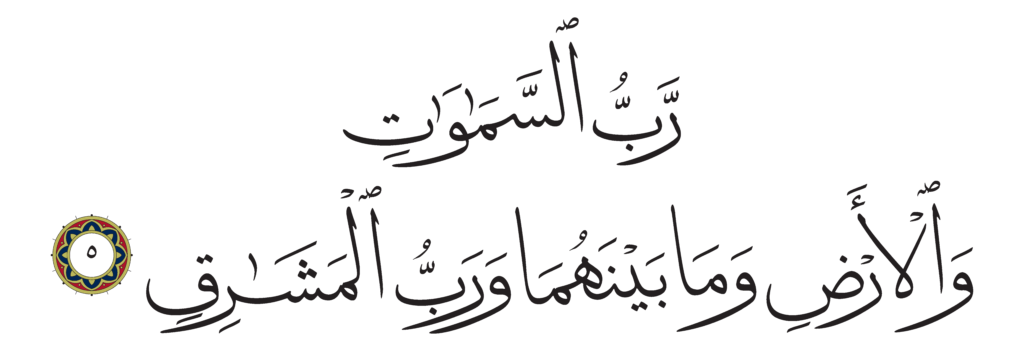 رَّبُّ ٱلسَّمَٰوَٰتِ
وَٱلْأَرْضِ وَمَا بَيْنَهُمَا وَرَبُّ ٱلْمَشَٰرِقِ ٥